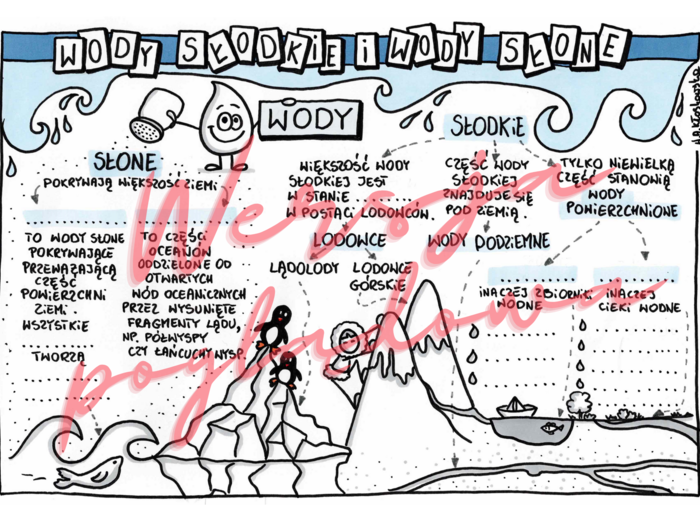 WODY SŁODKIE I WODY SŁONE
WODY
SŁONE
POKRYWAJĄ WIĘKSZOŚĆ ZIEMI
TO WODY SŁONE
POKRYWAJĄCE
PRZEWAŻAJĄCĄ
CZĘŚĆ
POWIERZCHNI
ZIEMI.
WSZYSTKIE
TWORZĄ
TO CZĘŚCI
OCEANÓW
ODDZIELONE OD
OTWARTYCH
WÓD OCEANICZNYCH
PRZEZ WYSUNIĘTE
FRAGMENTY LĄDU,
NP. PÓŁWYSPY
CZY ŁAŃCUCHY WYSP.
SŁODKIE
WIĘKSZOŚĆ WODY
SŁODKIEJ JEST
W STANIE
W POSTACI LODOWCÓW.
LODOWCE
LĄDOLODY
LODOWCE
GÓRSKIE
CZĘŚĆ WODY
SŁODKIEJ
ZNAJDUJE SIĘ
POD ZIEMIĄ.
WODY PODZIEMNE
TYLKO NIEWIELKĄ
CZĘŚĆ STANOWIĄ
WODY
POWIERZCHNIOWE
INACZEJ ZBIORNIKI
WODNE
INACZEJ
CIEKI WODNE
Wersja
poglądowa